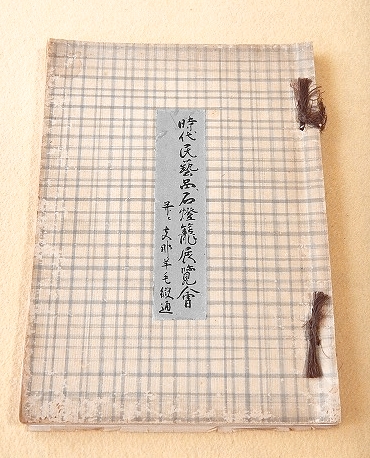 時代民藝品石燈籠展覧會
並ニ支那羊毛緞通